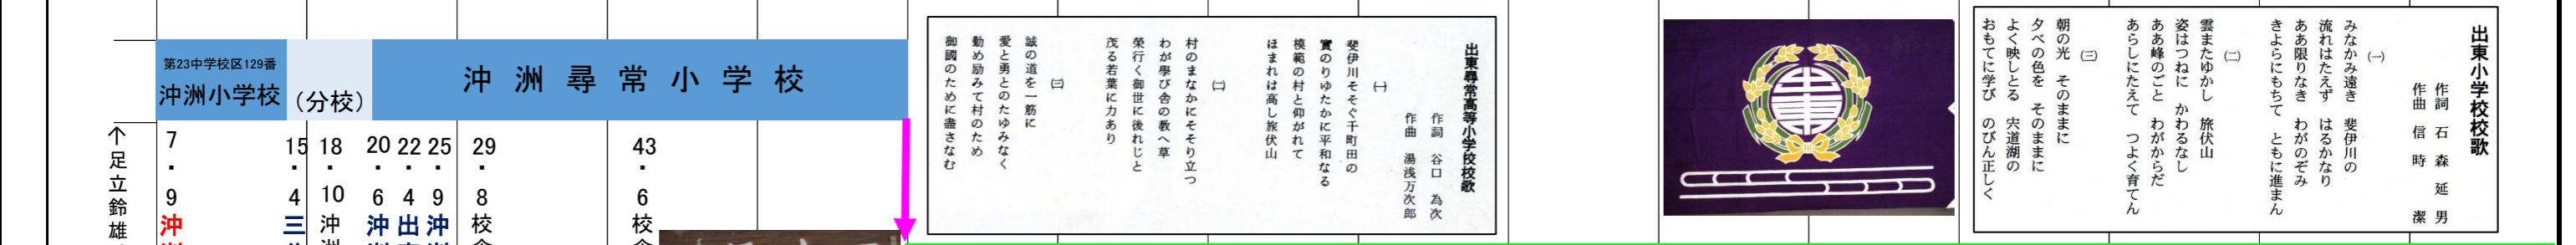 第23中学校区129番
沖洲小学校
（分校）
沖洲尋常小学校
个足立鈴雄
7・9沖
15・4三
18・10沖
20・6沖
22・4出
25・9沖
29・8校
43・6校
出東尋常高等小学校校歌
作詞 谷口為次
作曲 湯浅万次郎
㈠
斐伊川そそぐ千町田の
實のりゆたかに平和なる
模範の村と仰がれて
ほまれは高し旅伏山
㈡
村のまなかにそそり立つ
わが學び舎の教へ草
榮行く御世に後れじと
茂る若葉に力あり
㈢
誠の道を一筋に
愛と勇とのたゆみなく
勤め励みて村のため
御國のために盡さなむ
出東小学校校歌
作詞 石森延男
作曲 信時潔
㈠
みなかみ遠き 斐伊川の
流れはたえず はるかなり
ああ限りなき わがのぞみ
きよらにもちて ともに進まん
㈡
雲またゆかし 旅伏山
姿はつねに かわるなし
ああ峰のごと わがからだ
あらしにたえて つよく育てん
㈢
朝の光 そのままに
夕べの色を そのままに
よく映しとる 宍道湖の
おもてに学び のびん正しく